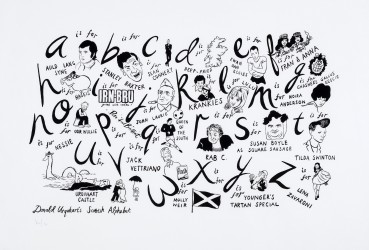 a b c d e f g
is for
AULD LANG SYNE
is for
STANLEY BAXTER
is for
SEAN CONNERY
is for
DEEP-FRIED
is for
is for
FRAN & ANNA
is for
h i j k l m
IRN-BRU
is for
JOHN LAURIE
is for
KRANKIES
is for
is for
MOIRA ANDERSON
n o p q r s t
is for
NESSIE
is for
OOR WULLIE
is for
is for
QUEEN OF THE SOUTH
is for
RAB C.
is for
SUSAN BOYLE
AS SQUARE SAUSAGE
is for
TILDA SWINTON
u v w x y z
is for
URQUHART CASTLE
is for
JACK VETTRIANO
is for
MOLLY WEIR
is for
is for
YOUNGER'S
TARTAN SPECIAL
is for
LENA ZAVARONI
Donald Urquhart's Scottish Alphabet